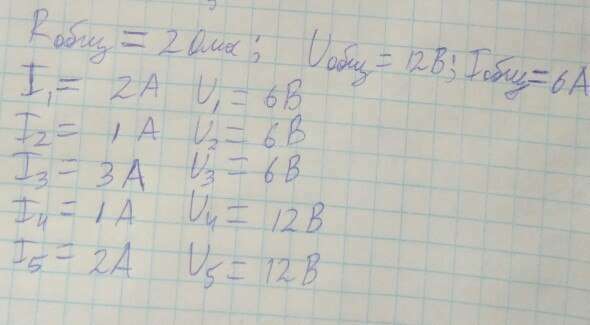 Rобщ = 2 Ома; Uобщ = 12В; Iобщ = 6А
I1 = 2А U1 = 6В
I2 = 1А U2 = 6В
I3 = 3А U3 = 6В
I4 = 1А U4 = 12В
I5 = 2А U5 = 12В